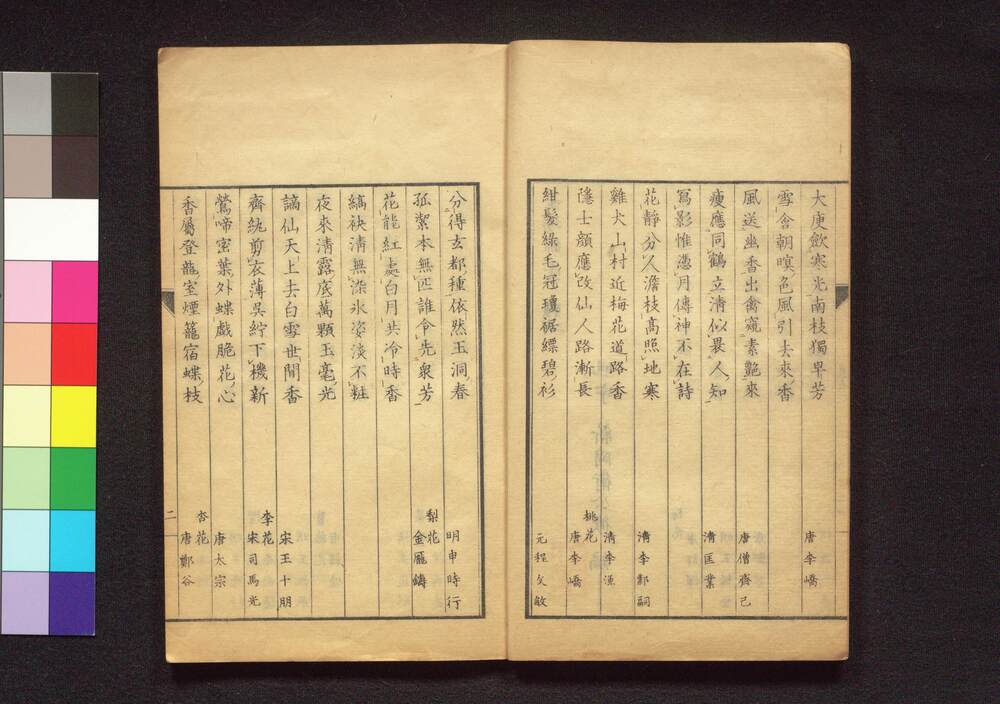 大庾歛寒光南枝獨早芳
唐李嶠
雪含朝暝色風引去來香
風送幽香出禽窺素艷來
唐僧齊己
瘦應同鶴立清似畏人知
清匡業
寫影惟憑月傳神不在詩
花靜分人澹枝高照地寒
清李鄴嗣
雞犬山村近梅花道路香
清李
隱士顏應改仙人路漸長
桃花
唐李嶠
紺髮綠毛冠瓊裾縹碧衫
元程文敏
分得玄都種依然玉洞春
明申時行
孤絜本無匹誰令先衆芳
梨花
金龐鑄
花能紅處白月共冷時香
縞袂清無染氷姿淡不粧
夜來清露底萬顆玉毫光
謫仙天上去白雪世間香
宋王十朋
齊紈剪衣薄吳紵下機新
李花
宋司馬光
鶯啼密葉外蝶戲脆花心
唐太宗
香屬登龍室煙籠宿蝶枝
杏花
唐鄭谷
二